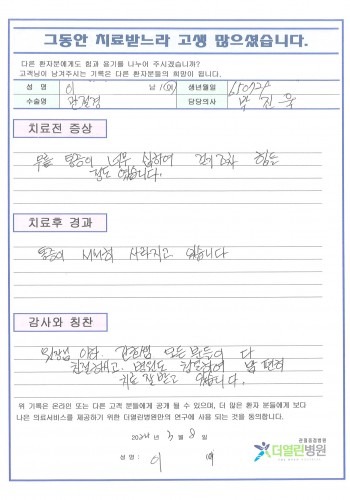 그동안 치료받느라 고생 많으셨습니다.
다른 환자분에게도 힘과 용기를 나누어 주시겠습니까?
고객님이 남겨주시는 기록은 다른 환자분들의 희망이 됩니다.
성 명 이 남 / 여 생년월일
수술명 관절경 담당의사 박진욱
치료전 증상
무릎 통증이 너무 심하여 걷기조차 힘든
정도 였습니다.
치료후 경과
통증이 서서히 사라지고 있습니다
감사와 칭찬
원장님 이하 간호쌤 모든 분들이 다
친절하시고, 병원도 청결하여 맘 편히
치료 잘 받고 갑니다.
위 기록은 온라인 또는 다른 고객 분들에게 공개 될 수 있으며, 더 많은 환자 분들에게 보다
나은 의료서비스를 제공하기 위한 더열린병원만의 연구에 사용 되는 것을 동의합니다.
3월 8일
성 명 : 이
관절중점병원
더열린병원